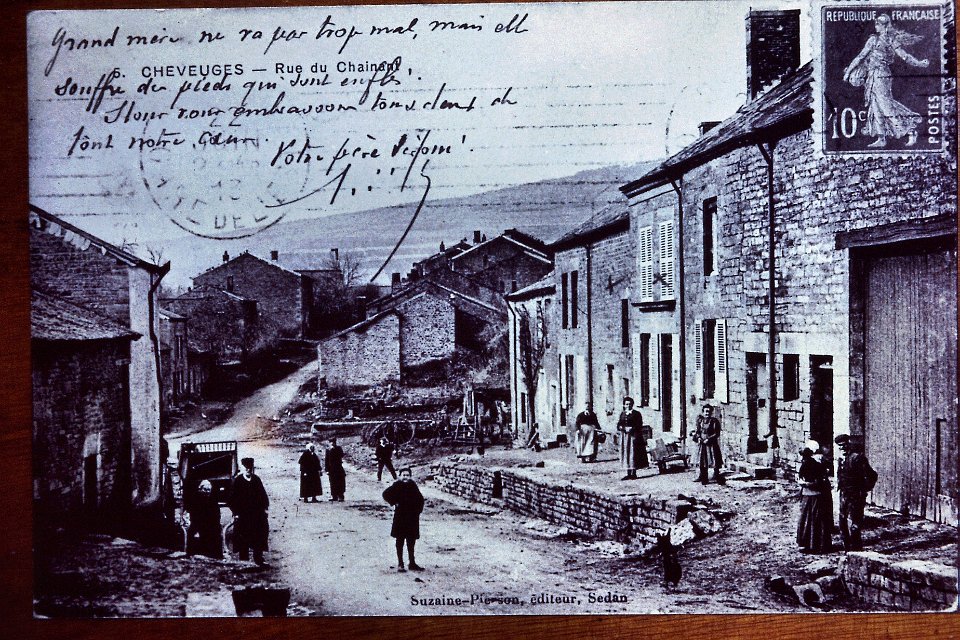 Grand mère ne va pas trop mal, mais elle
5. CHEVEUGES — Rue du Chainant
souffre des pieds qui sont enflés.
Nous vous embrassons tous deux de
tout notre cœur.
Votre père
RÉPUBLIQUE FRANÇAISE
10c
POSTES
Suzaine-Pierson, éditeur, Sedan